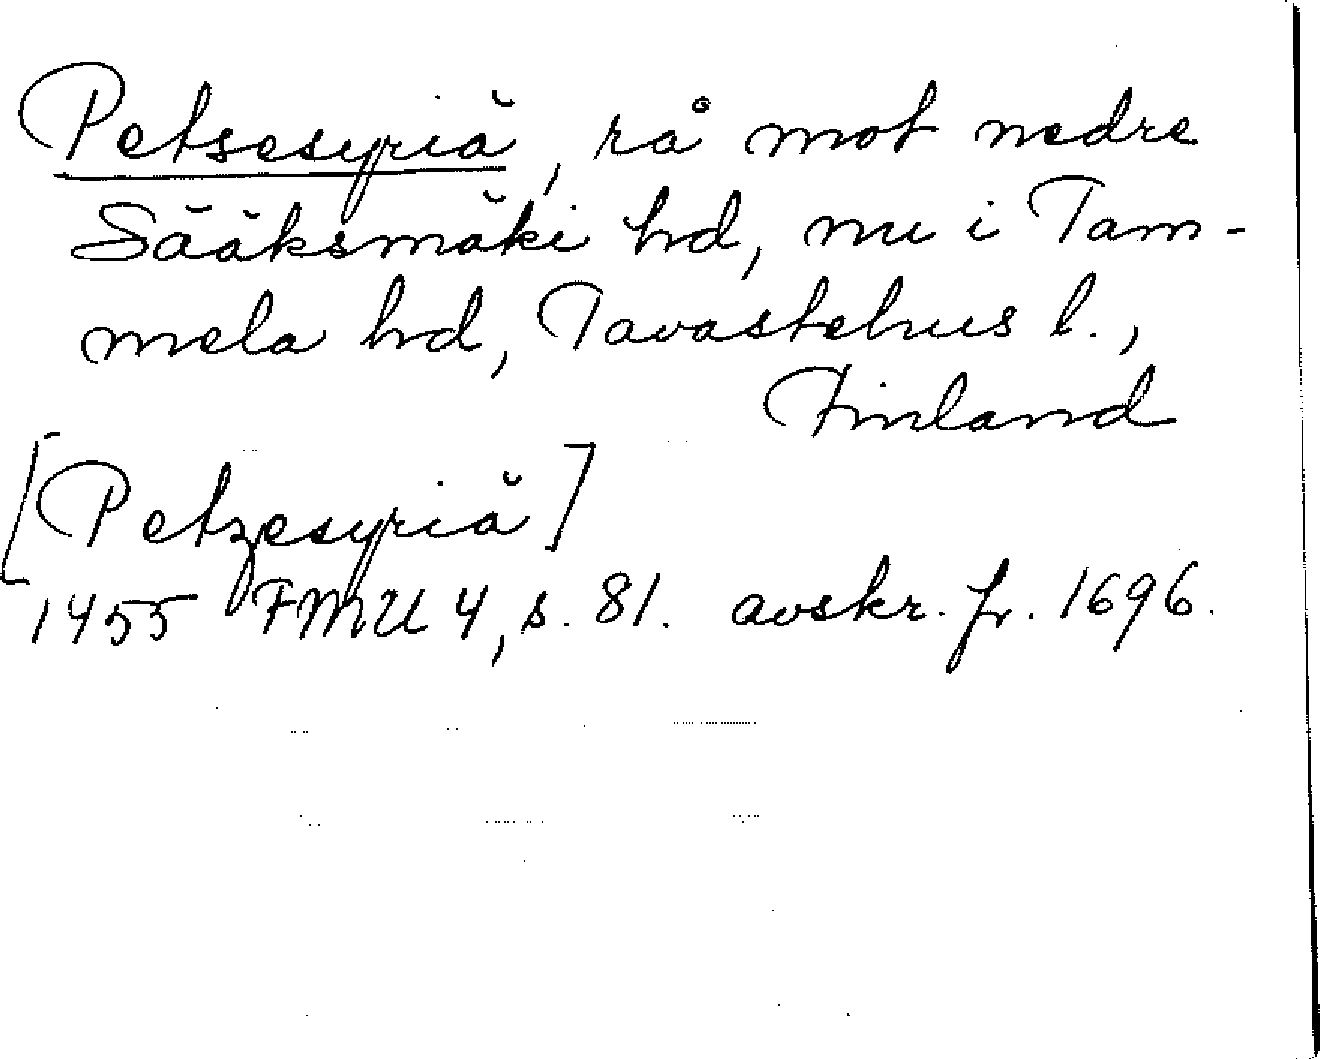 Petsesyriä, rå mot nedre
Sääksmäki hd, nu i Tam-
mela hd, Tavastehus l.,
Finland
[Petzesyriä]
1455 FMU 4, s. 81. avskr. fr. 1696.